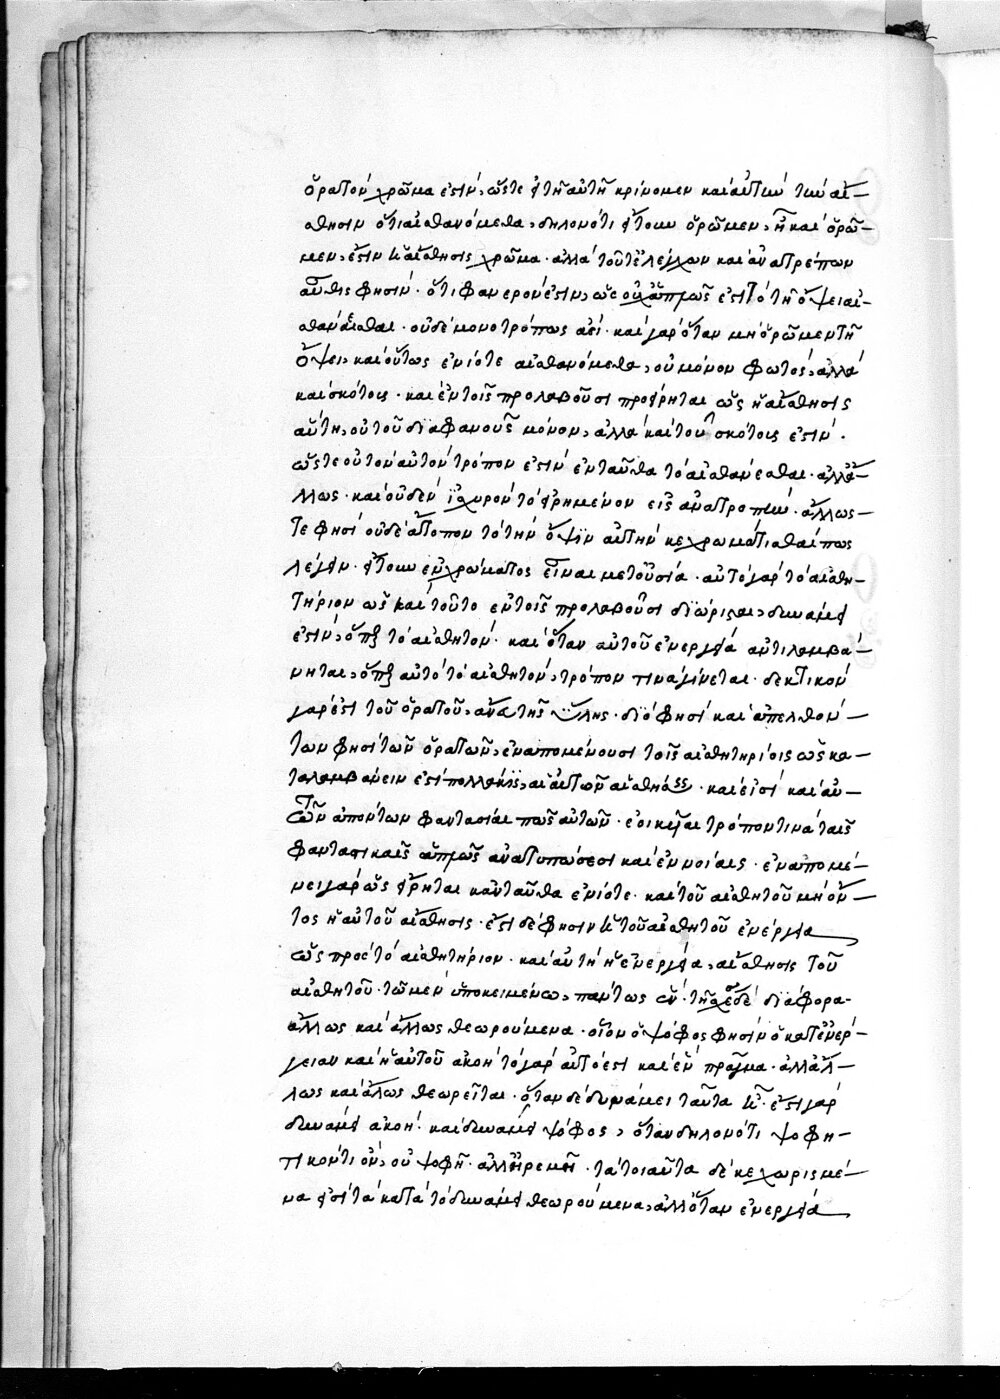 ὁρατὸν χρῶμα ἐστίν, ὥστε εἰ τῇ αὐτῇ κρίνομεν καὶ αὐτὴν τὴν αἴ-
σθησιν ὅτι αἰσθανόμεθα, δηλονότι εἴτουν ὁρῶμεν, ᾗ καὶ ὁρῶ-
μεν, ἔστιν καὶ αἴσθησις χρῶμα· ἀλλὰ τοῦτ' ἐλέγχων καὶ ἀνατρέπων
αὖθις φησίν· ὅτι φανερὸν ἐστιν, ὡς οὐχ ἁπλῶς ἐστι τὸ τῇ ὄψει αἰσ-
θάνεσθαι· οὐδὲ μονοτρόπως ἀεί· καὶ γὰρ ὅταν μὴ ὁρῶμεν τῇ
ὄψει, καὶ οὕτως ἐνίοτε αἰσθανόμεθα, οὐ μόνον φωτός, ἀλλὰ
καὶ σκότους· καὶ ἐν τοῖς προλαβοῦσι προείρηται ὡς ἡ αἴσθησις
αὕτη, οὐ τοῦ διαφανοῦς μόνον, ἀλλὰ καὶ τοῦ σκότους ἐστίν.
ὥστε οὐ τὸν αὐτὸν τρόπον ἐστὶν ἐνταῦθα τὸ αἰσθάνεσθαι· ἀλλ' ἄ-
λλως· καὶ οὐδὲν ἰσχυρὸν τὸ εἰρημένον εἰς ἀνατροπήν· ἄλλως
τε φησὶ οὐδὲ ἄτοπον τὸ τὴν ὄψιν αὐτὴν κεχρωματίσθαί πως
λέγειν· εἴτουν ἐν χρώματος εἶναι μετουσίᾳ· αὐτὸ γὰρ τὸ αἰσθη-
τήριον ὡς καὶ τοῦτο ἐν τοῖς προλαβοῦσι διώρισται, δυνάμει
ἐστίν, ὅπερ τὸ αἰσθητόν· καὶ ὅταν αὐτοῦ ἐνεργείᾳ ἀντιλαμβά-
νηται, ὅπερ αὐτὸ τὸ αἰσθητόν, τρόπον τινὰ γίνεται· δεκτικὸν
γάρ ἐστι τοῦ ὁρατοῦ, ἄνευ τῆς ὕλης· διό φησι καὶ ἀπελθόν-
των φησὶ τῶν ὁρατῶν, ἐναπομένουσι τοῖς αἰσθητηρίοις ὡς κα-
ταλαμβάνειν ἐστὶ πολλάκις, αἱ αὐτῶν αἰσθήσεις· καὶ εἰσὶ καὶ αὐ-
τῶν ἀπόντων φαντασίαι πως αὐτῶν· ἐοικυῖαι τρόπον τινὰ ταῖς
φανταστικαῖς ἁπλῶς ἀνατυπώσεσι καὶ ἐννοίαις· ἐναπομέ-
νει γὰρ ὡς εἴρηται κἀνταῦθα ἐνίοτε· καὶ τοῦ αἰσθητοῦ μὴ ὄν-
τος ἡ αὐτοῦ αἴσθησις· ἔστι δέ φησιν ἡ τοῦ αἰσθητοῦ ἐνέργεια
ὡς πρὸς τὸ αἰσθητήριον· καὶ αὐτὴ ἡ ἐνέργεια, αἴσθησις τοῦ
αἰσθητοῦ· τῷ μὲν ὑποκειμένῳ, πάντως ἕν· τῇ σχέσει δὲ διάφορα
ἄλλως καὶ ἄλλως θεωρούμενα· οἷον ὁ ψόφος φησὶν ὁ κατ' ἐνέρ-
γειαν καὶ ἡ αὐτοῦ ἀκοὴ τὸ γὰρ αὐτό ἐστι καὶ ἓν πρᾶγμα· ἀλλ' ἄλ-
λως καὶ ἄλλως θεωρεῖται· ὅταν δὲ δυνάμει ταῦτα ᾖ· ἔστι γὰρ
δυνάμει ἀκοή· καὶ δυνάμει ψόφος, ὅταν δηλονότι ψοφη-
τικόν τι ὄν, οὐ ψοφῇ· ἀλλ' ἠρεμῇ· τὰ τοιαῦτα δὲ κεχωρισμέ-
να εἰσὶ τὰ κατὰ τὸ δυνάμει θεωρούμενα, ἀλλ' ὅταν ἐνεργείᾳ